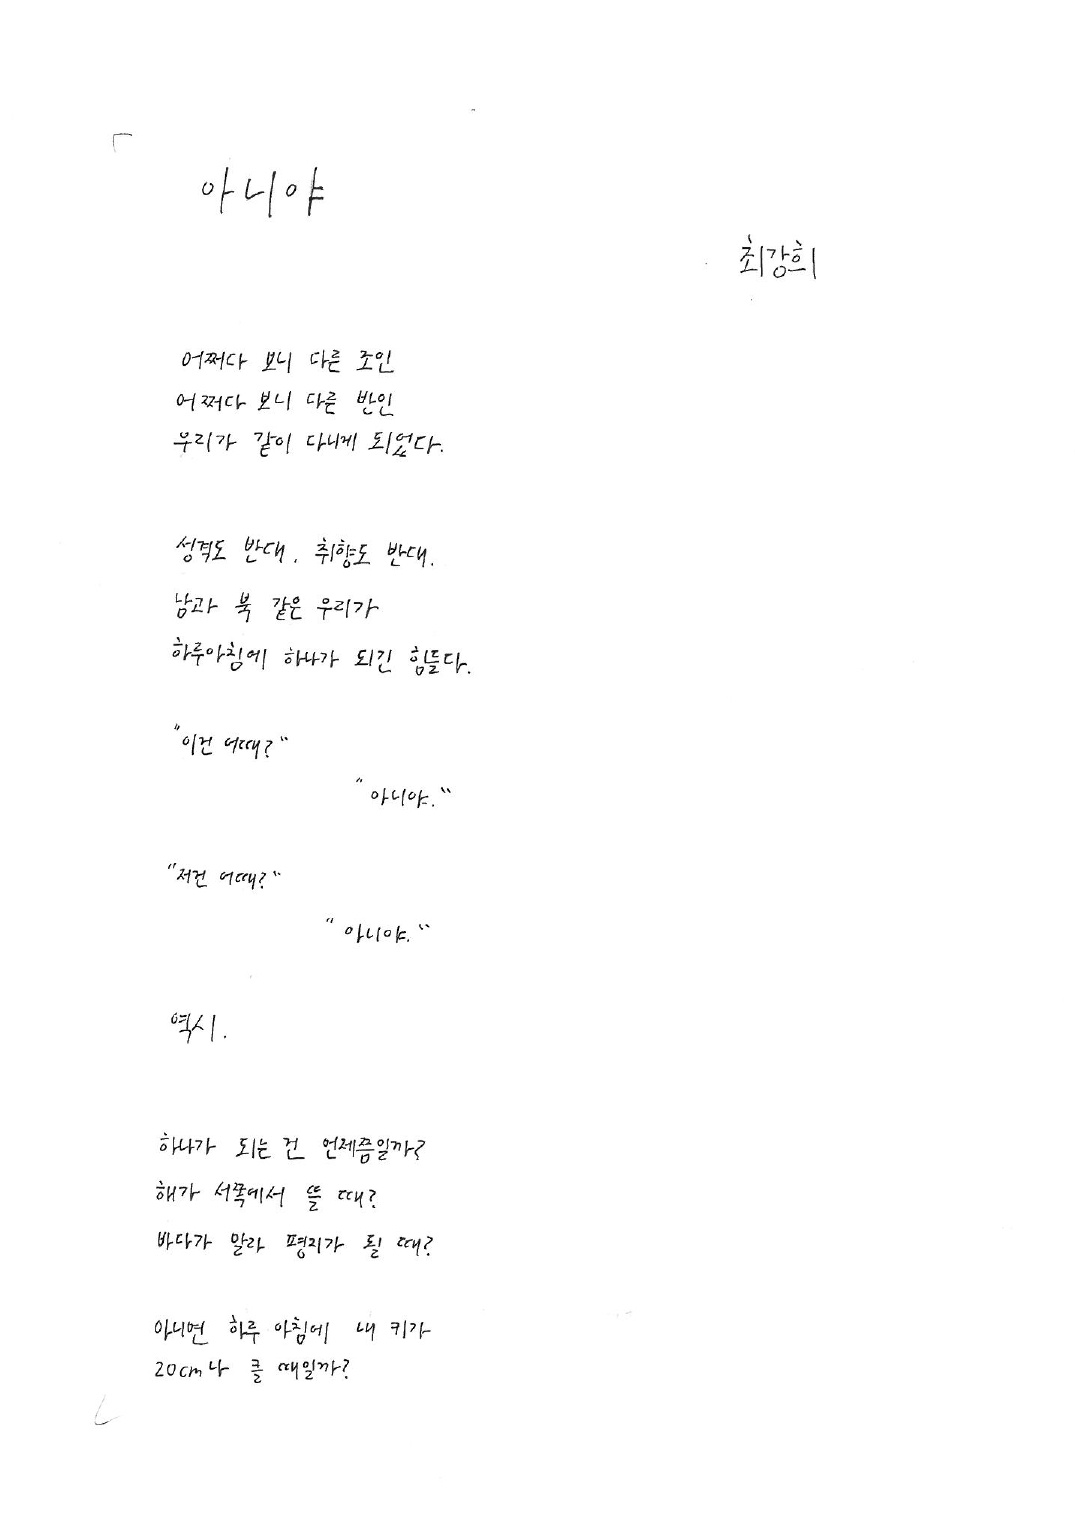 아니야
최강희
어쩌다 보니 다른 조인
어쩌다 보니 다른 반인
우리가 같이 다니게 되었다.
성격도 반대, 취향도 반대.
남과 북 같은 우리가
하루아침에 하나가 되긴 힘들다.
"이건 어때?"
"아니야."
"저건 어때?"
"아니야."
역시.
하나가 되는 건 언제쯤일까?
해가 서쪽에서 뜰 때?
바다가 말라 평지가 될 때?
아니면 하루 아침에 내 키가
20cm나 클 때일까?